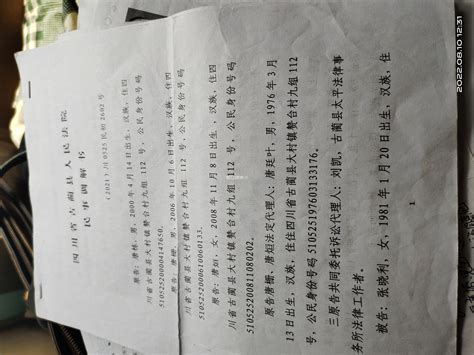 四川省古蔺县人民法院
民事调解书
（2021）川0525民初2602号
原告：唐林，男，2000年4月14日出生，汉族，住四
川省古蔺县大村镇赞台村九组112号，公民身份号码
510525200004147650.
原告：唐栅，男，2006年10月6日出生，汉族，住四
川省古蔺县大村镇赞台村九组112号，公民身份号码
510525200610060133.
原告：唐，女，2008年11月8日出生，汉族，住四
川省古蔺县大村镇赞台村九组112号，公民身份号码
510525200811080202.
原告唐栅、唐法定代理人：唐廷叶，男，1976年3月
13日出生，汉族，住四川省古蔺县大村镇赞台村九组112
号，公民身份号码510525197603133176。
三原告共同委托诉讼代理人：刘凯，古蔺县太平法律事
务所法律工作者。
被告：张晓利，女，1981年1月20日出生，汉族，住
1
2022.08.10 12:31